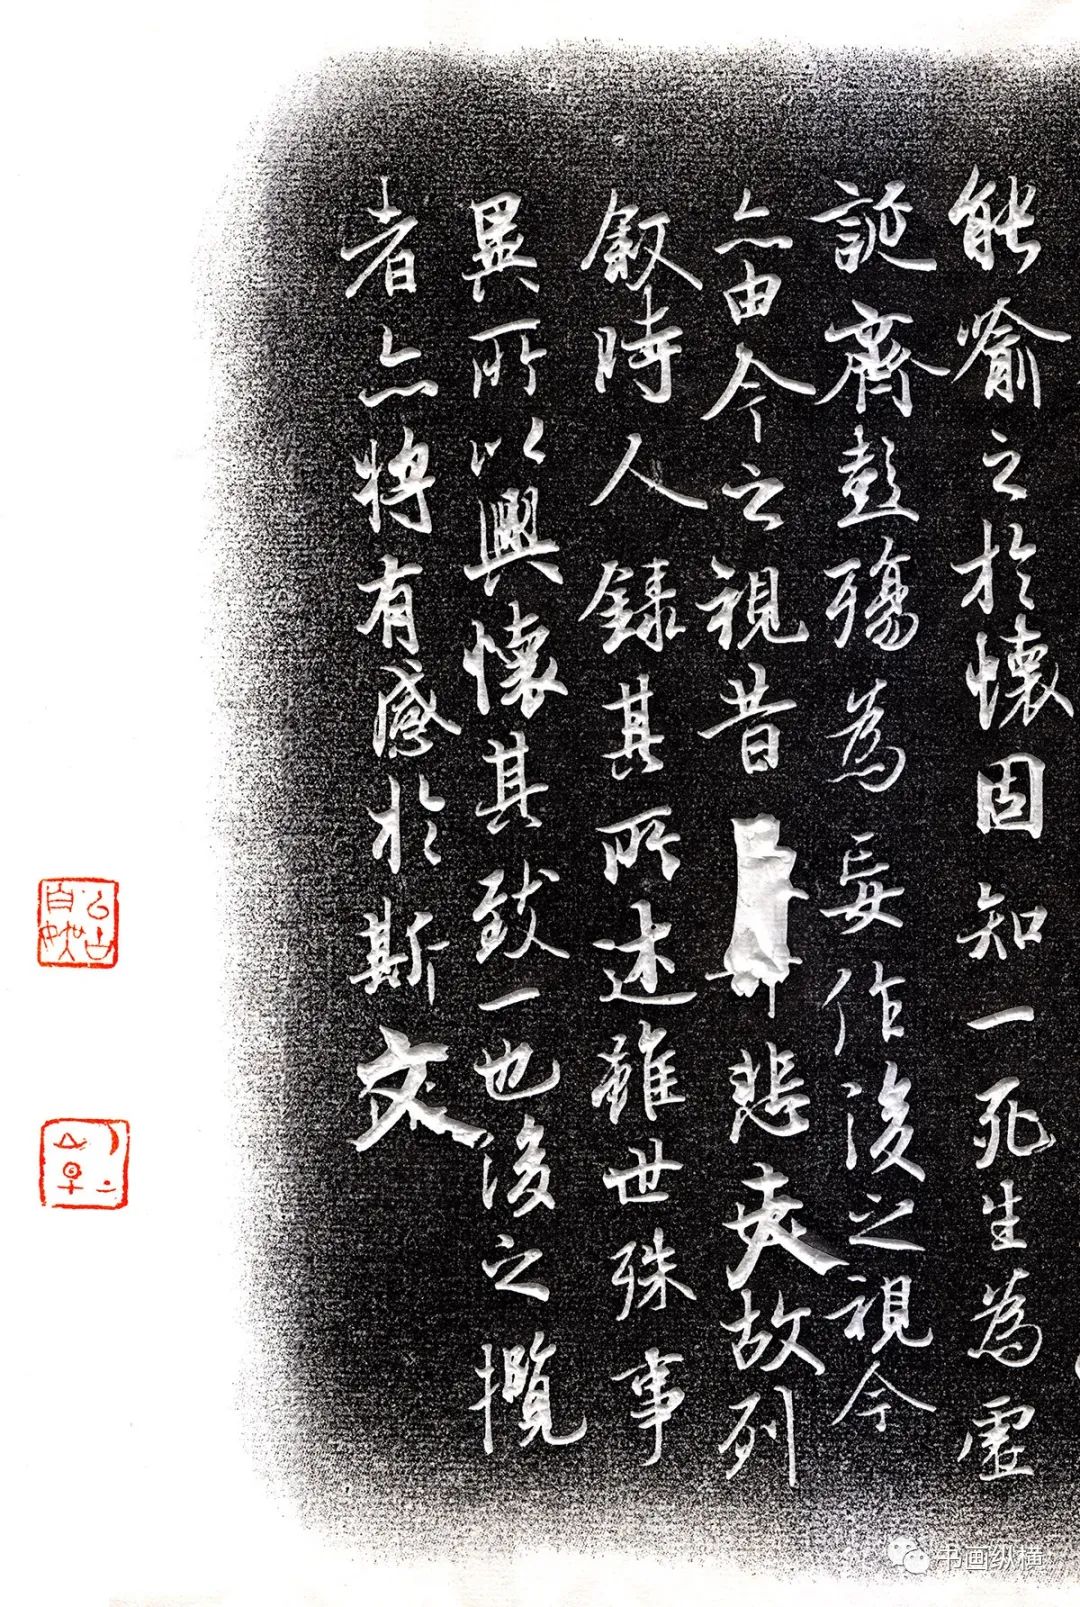 能喻之於懷固知一死生為虛
誕齊彭殤為妄作後之視今
亦由今之視昔悲夫故列
敘時人錄其所述雖世殊事
異所以興懷其致一也後之攬
者亦將有感於斯文
书画纵横